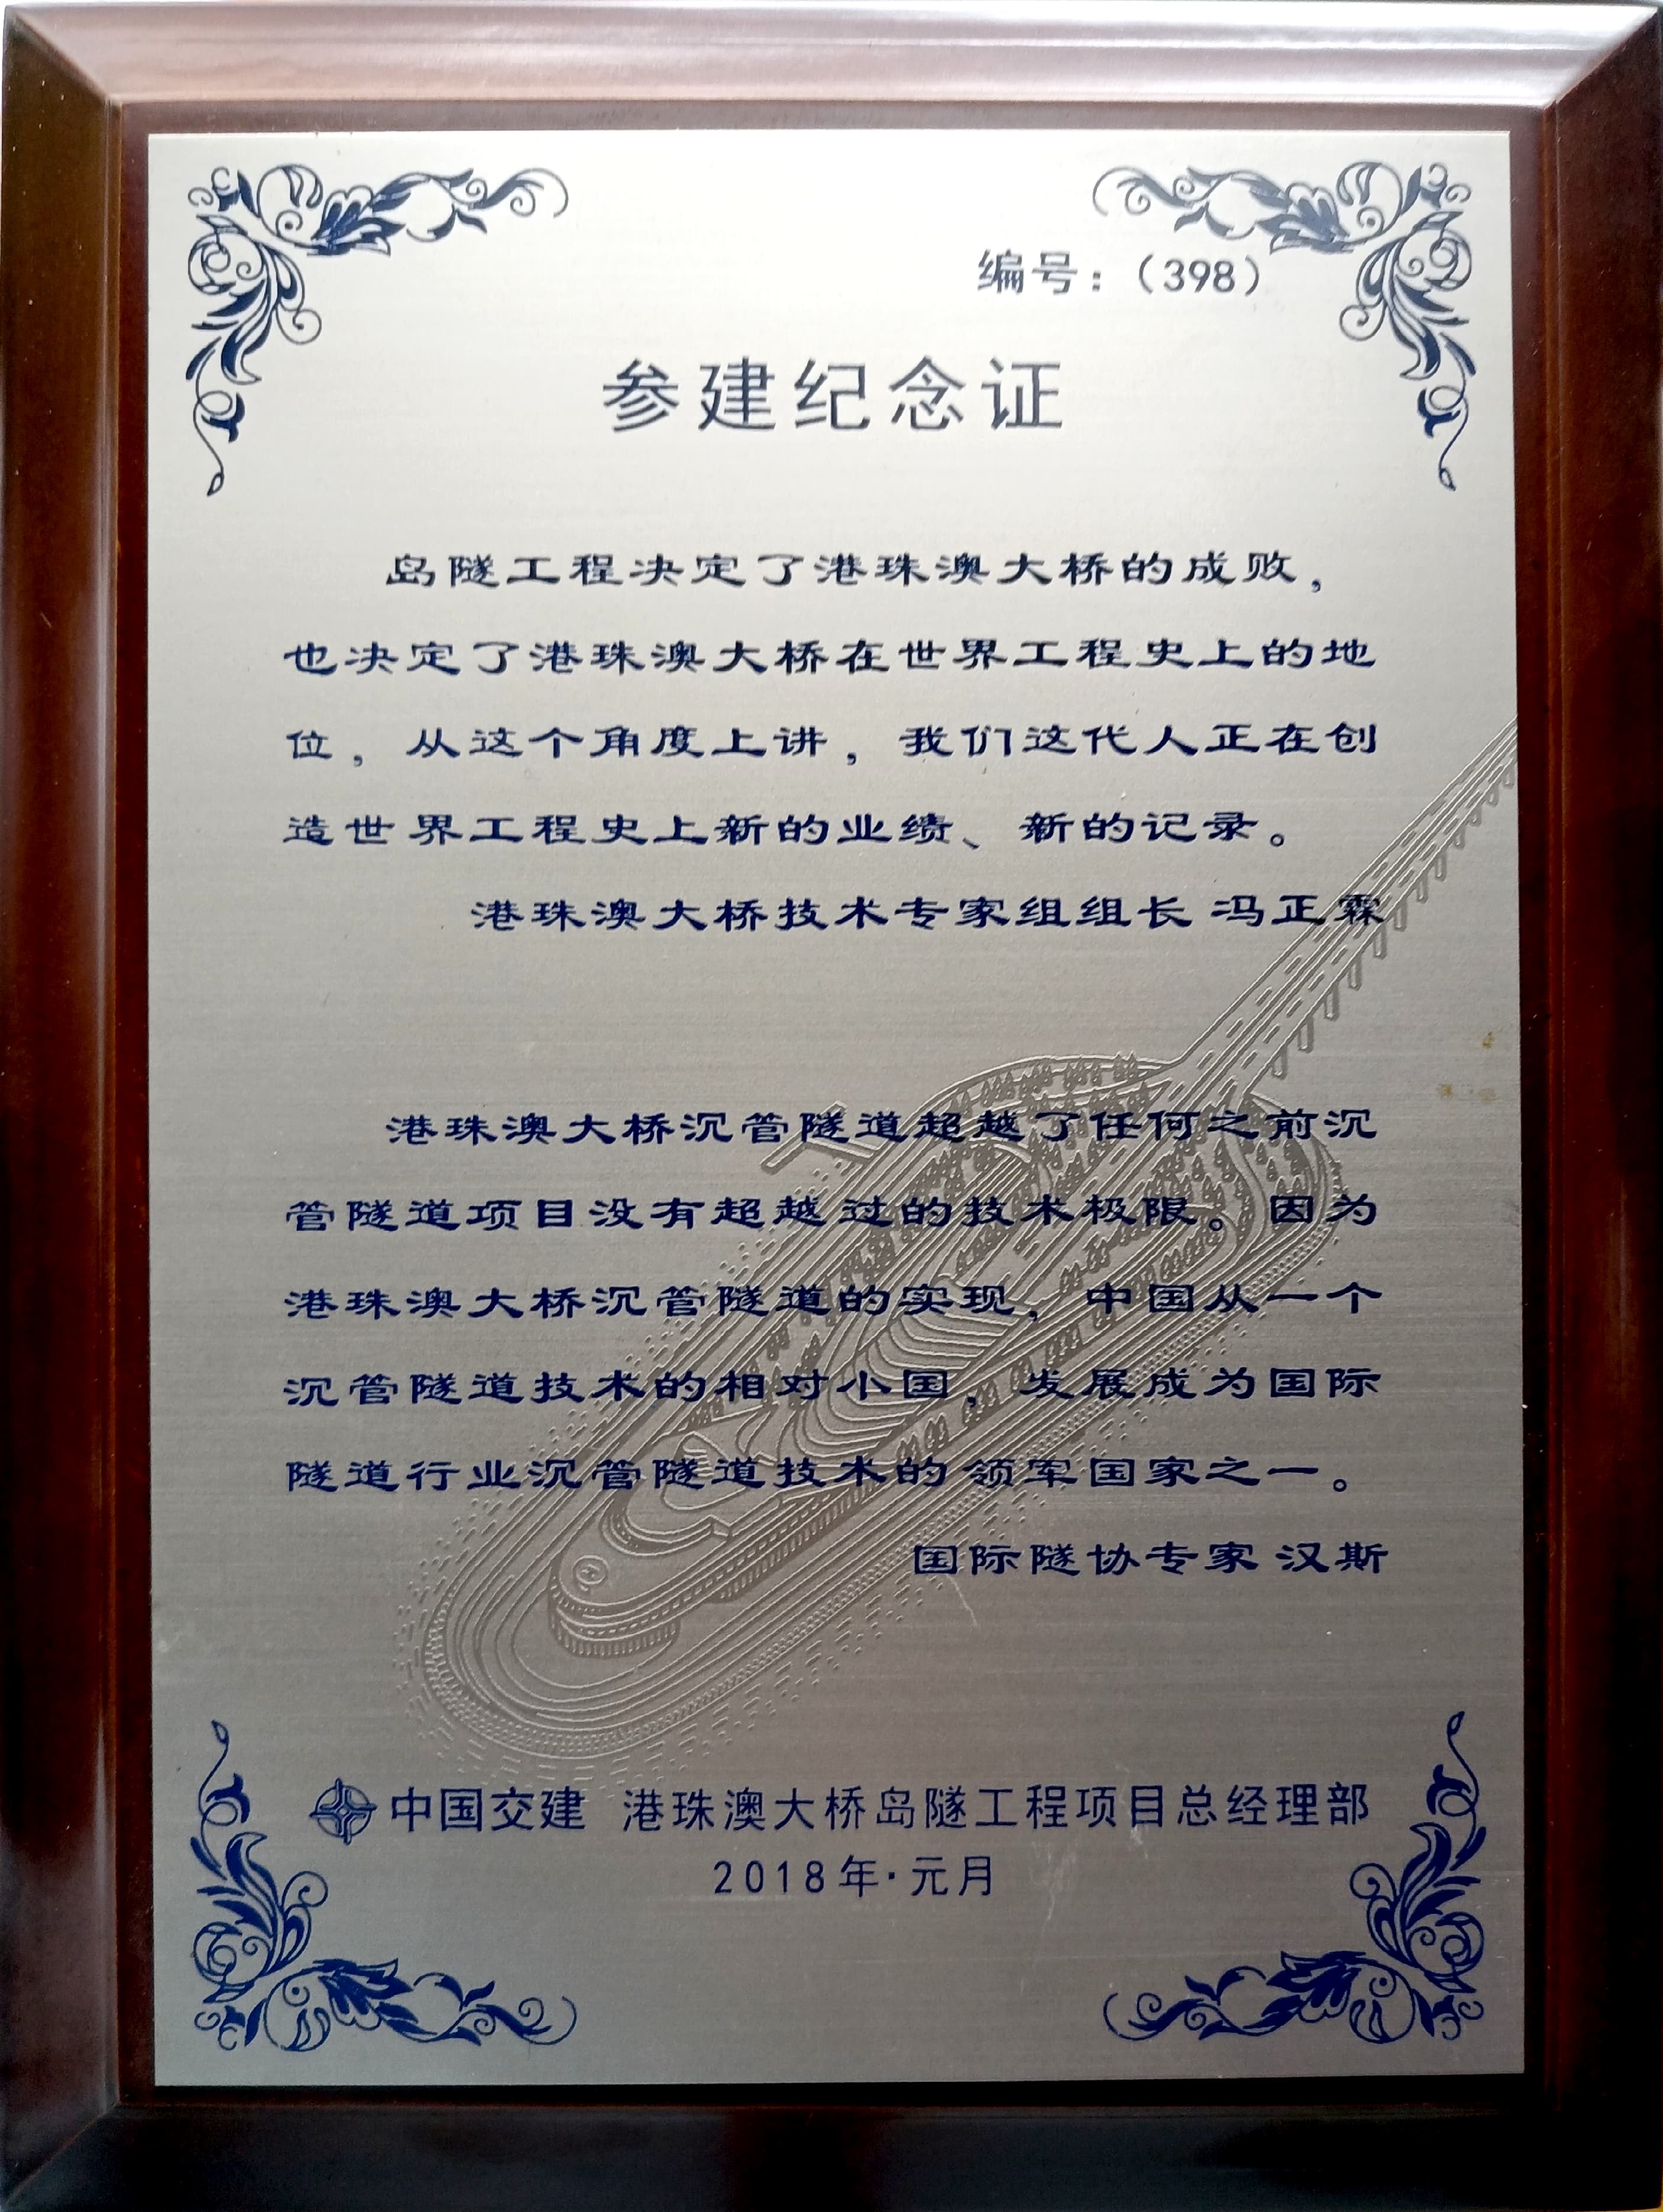 编号：（398）
参建纪念证
岛隧工程决定了港珠澳大桥的成败，
也决定了港珠澳大桥在世界工程史上的地
位，从这个角度上讲，我们这代人正在创
造世界工程史上新的业绩、新的记录。
港珠澳大桥技术专家组组长 冯正霖
港珠澳大桥沉管隧道超越了任何之前沉
管隧道项目没有超越过的技术极限。因为
港珠澳大桥沉管隧道的实现，中国从一个
沉管隧道技术的相对小国，发展成为国际
隧道行业沉管隧道技术的领军国家之一。
国际隧协专家 汉斯
中国交建 港珠澳大桥岛隧工程项目总经理部
2018年·元月